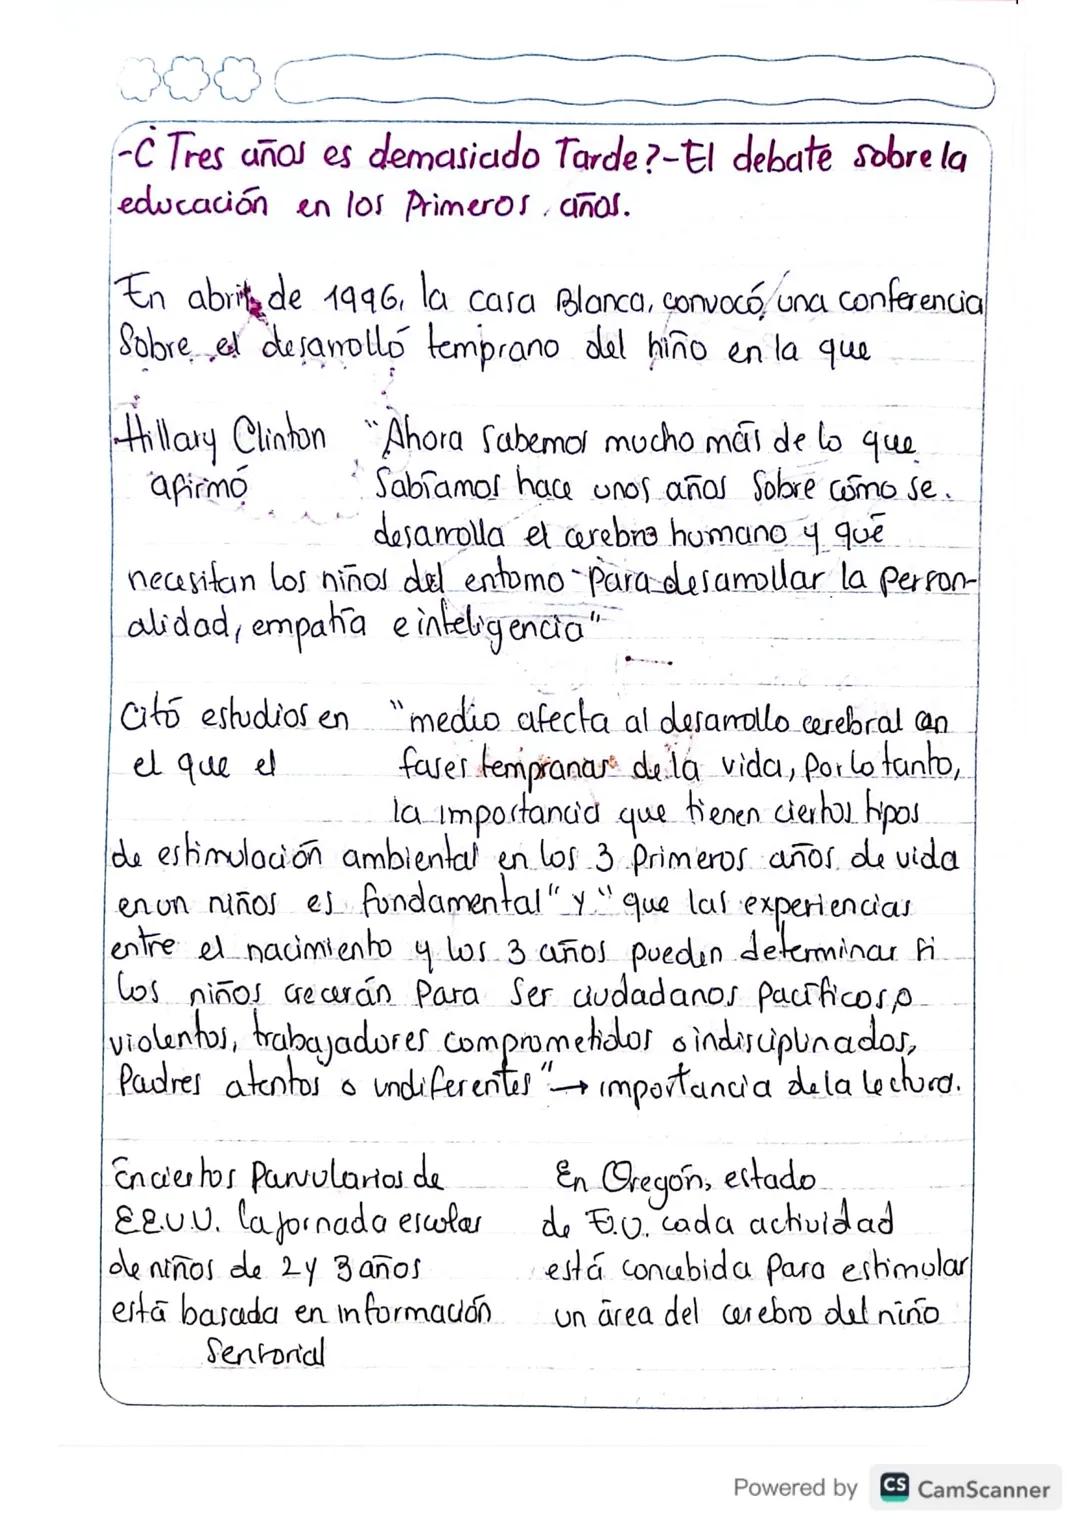 -¿Tres años es demasiado Tarde?-El debate sobre la
educación en los Primeros años.
En abril de 1996, la casa Blanca, convocó una conferencia
Sobre el desarrolló temprano del niño en la que
Hillary Clinton "Ahora Sabemos mucho más de lo que
afirmó Sabíamos hace unos años Sobre cómo se
desarrolla el cerebro humano y qué
necesitan los niños del entorno para desarrollar la person-
alidad, empatía e inteligencia"
Citó estudios en "medio afecta al desarrollo cerebral en
el que el fases tempranas de la vida, Por lo tanto,
la importancia que tienen ciertos tipos
de estimulación ambiental en los 3 Primeros años de vida
en un niños es fundamental" y "que las experiencias
entre el nacimiento y los 3 años pueden determinar si
los niños crecerán Para Ser ciudadanos Pacíficos o
violentos, trabajadores comprometidos o indisciplinados,
Padres atentos o undiferentes" → importancia de la lectura.
En ciertos Parvularios de
EE.U.U. la jornada escolar
de niños de 2 y 3 años
está basada en información
Sensorial
En Oregón, estado
de E.U. cada actividad
está concebida para estimular
un área del cerebro del niño
Powered by CS CamScanner